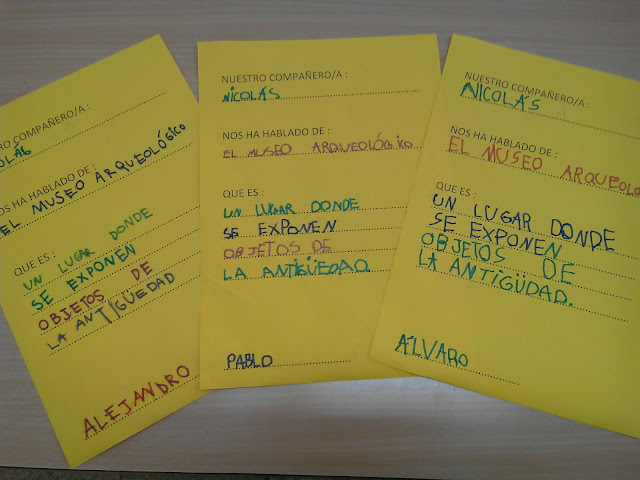 TRO COMPAÑERO/A :
OLÁS
NOS HA HABLADO DE :
EL MUSEO ARQUEOLÓGICO
QUE ES :
UN LUGAR DONDE
SE EXPONEN
OBJETOS DE
LA ANTIGÜEDAD
ALEJANDRO
NUESTRO COMPAÑERO/A :
NICOLÁS
NOS HA HABLADO DE :
EL MUSEO ARQUEOLÓGICO
QUE ES :
UN LUGAR DONDE
SE EXPONEN
OBJETOS DE
LA ANTIGÜEDAD.
PABLO
NUESTRO COMPAÑERO/A :
NICOLÁS
NOS HA HABLADO DE :
EL MUSEO ARQUEOLO
QUE ES :
UN LUGAR DONDE
SE EXPONEN
OBJETOS DE
LA ANTIGÜDAD.
ÁLVARO